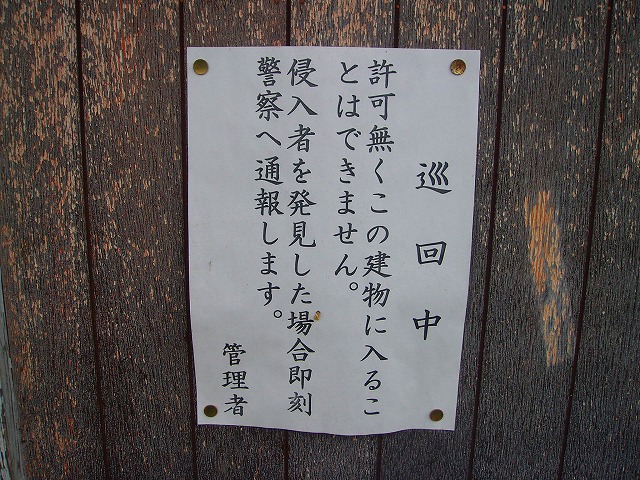 巡回中
許可無くこの建物に入るこ
とはできません。
侵入者を発見した場合即刻
警察へ通報します。
管理者